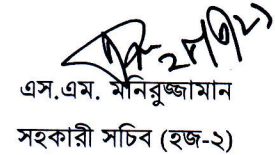 এস.এম. মনিরুজ্জামান
সহকারী সচিব (হজ-২)